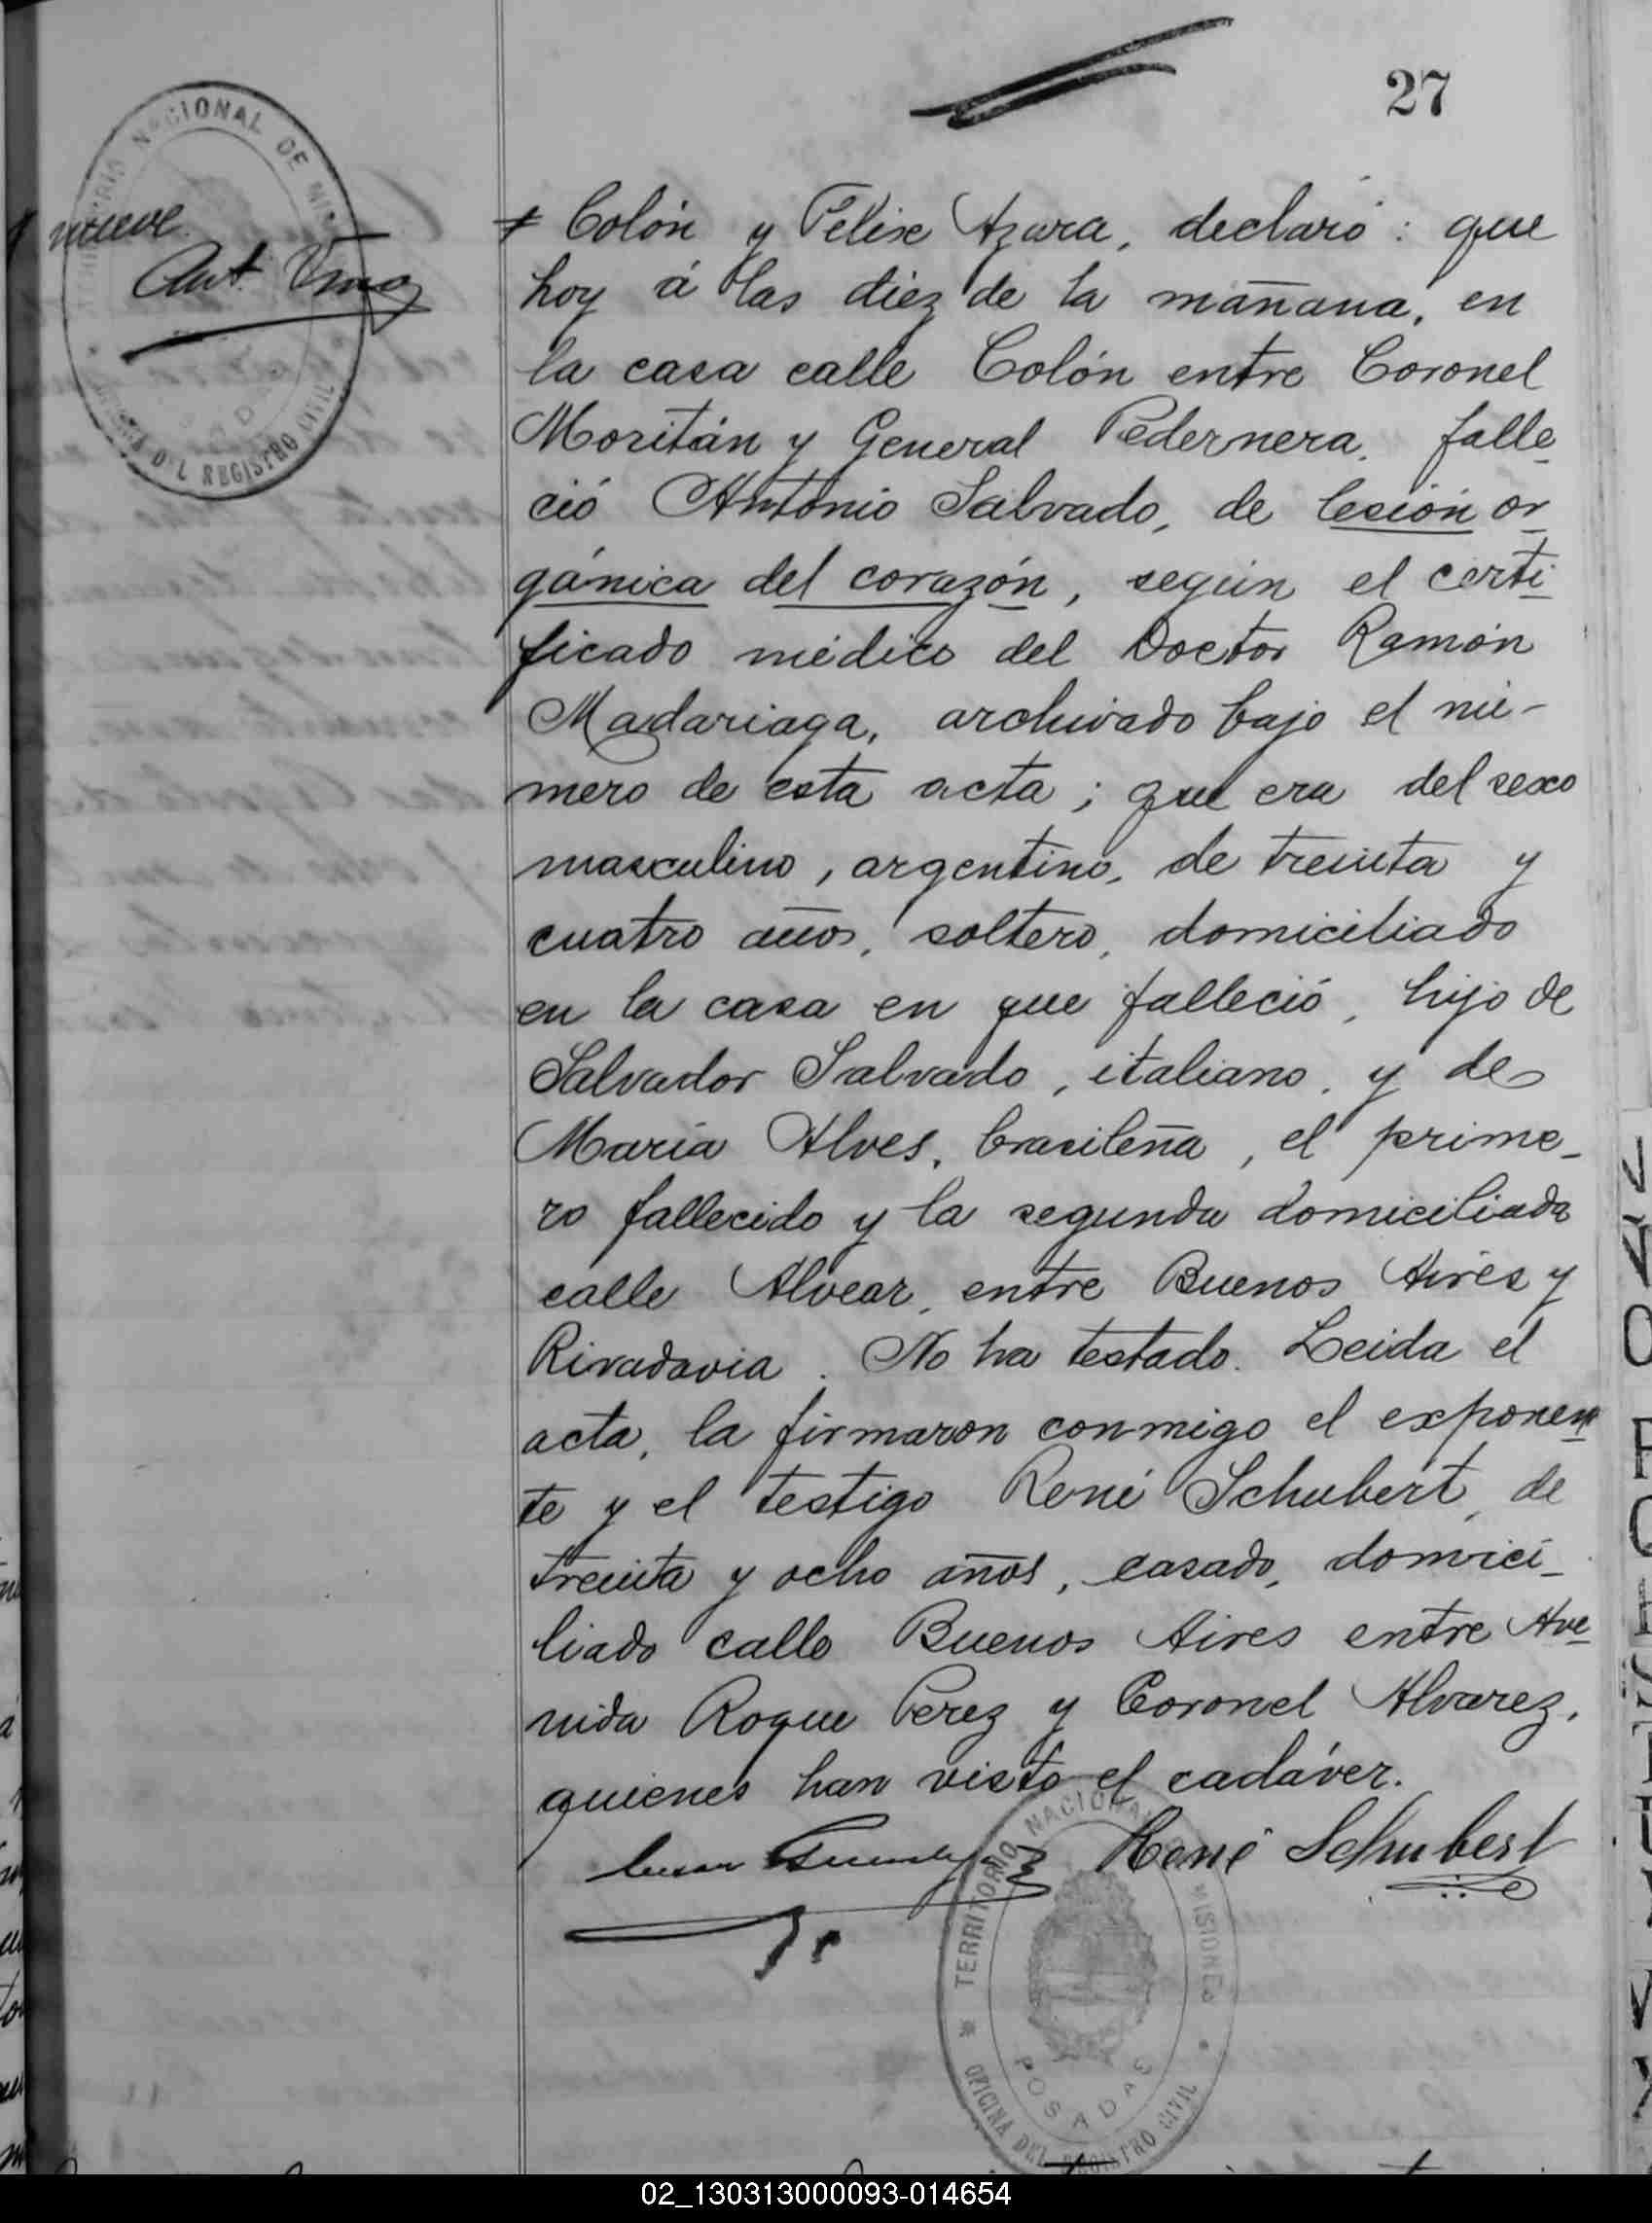 27
TERRITORIO NACIONAL DE MISIONES
OFICINA DEL REGISTRO CIVIL
nueve
Colón y Felix Azara, declaró: que
hoy á las diez de la mañana, en
la casa calle Colón entre Coronel
Moritán y General Pedernera, falle
ció Antonio Salvado, de lesión or
gánica del corazón, según el certi
ficado médico del Doctor Ramón
Madariaga, archivado bajo el nú-
mero de esta acta; que era del sexo
masculino, argentino, de treinta y
cuatro años, soltero, domiciliado
en la casa en que falleció, hijo de
Salvador Salvado, italiano, y de
María Alves, brasileña, el prime-
ro fallecido y la segunda domiciliada
calle Alvear, entre Buenos Aires y
Rivadavia. No ha testado. Leida el
acta, la firmaron conmigo el exponen
te y el testigo René Schubert, de
treinta y ocho años, casado, domici-
liado calle Buenos Aires entre Ave
nida Roque Perez y Coronel Alvarez,
quienes han visto el cadáver.
René Schubert
TERRITORIO NACIONAL DE MISIONES
POSADAS
OFICINA DEL REGISTRO CIVIL
02_130313000093-014654